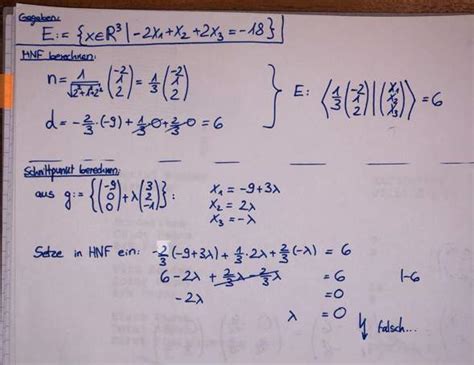 Gegeben:
E := { x∈R³ | -2x₁+x₂+2x₃ = -18 }
HNF berechnen:
n = 1/√(2²+1+2²) (-2 1 2) = 1/3 (-2 1 2)
d = -2/3·(-9) + 1/3·0 + 2/3·0 = 6
E: ⟨ 1/3 (-2 1 2) | (x₁ x₂ x₃) ⟩ = 6
Schnittpunkt berechnen:
aus g := { (-9 0 0) + λ (3 2 -1) } :
x₁ = -9+3λ
x₂ = 2λ
x₃ = -λ
Setze in HNF ein: -2/3 (-9+3λ) + 1/3·2λ + 2/3 (-λ) = 6
6 - 2λ + 2/3λ - 2/3λ = 6 |-6
-2λ = 0
λ = 0
falsch...